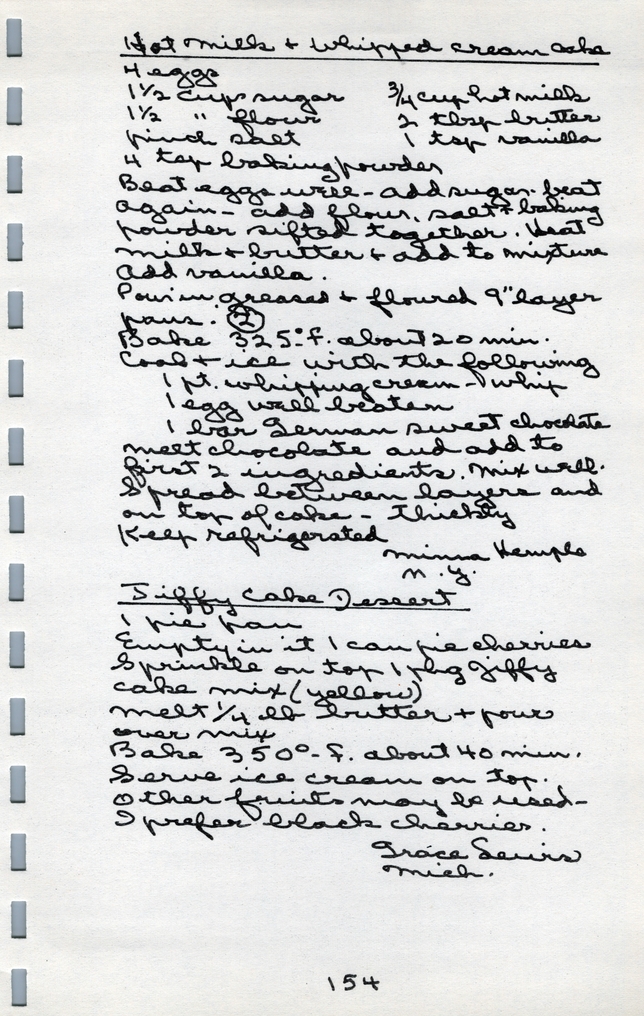 Hot Milk + Whipped Cream Cake
4 eggs
1 1/2 cups sugar 3/4 cup hot milk
1 1/2 " flour 2 tbsp butter
pinch salt 1 tsp vanilla
4 tsp baking powder
Beat eggs well - add sugar - beat
again - add flour, salt + baking
powder sifted together. Heat
milk + butter + add to mixture
Add vanilla.
Pour in greased + floured 9" layer
pans. (2)
Bake 325° f. about 20 min.
Cool + ice with the following
1 pt. whipping cream - whip
1 egg well beaten
1 bar German sweet chocolate
melt chocolate and add to
first 2 ingredients. Mix well.
Spread between layers and
on top of cake - thickly
Keep refrigerated
Minna Hemple
N.Y.
Jiffy Cake Dessert
1 pie pan
Empty in it 1 can pie cherries
Sprinkle on top 1 pkg Jiffy
cake mix (yellow)
melt 1/4 lb butter + pour
over mix
Bake 350° - f. about 40 min.
Serve ice cream on top.
Other fruits may be used -
I prefer black cherries.
Grace
Mich.
154